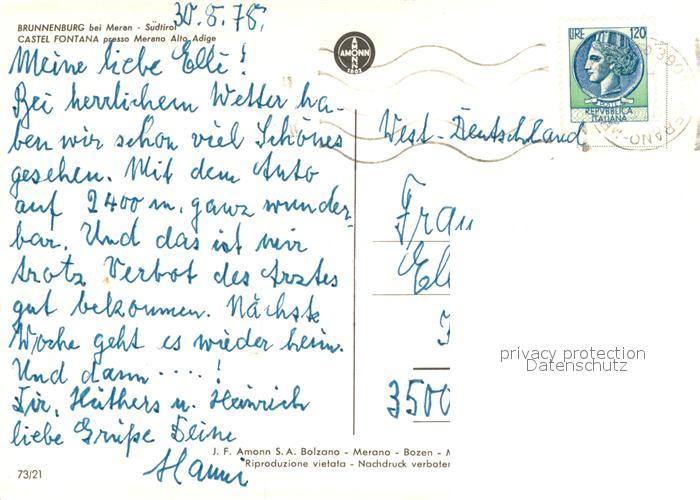 30.8.78.
BRUNNENBURG bei Meran - Südtirol
CASTEL FONTANA presso Merano Alto Adige
Meine liebe Elli!
Bei herrlichem Wetter ha-
ben wir schon viel Schönes
gesehen. Mit dem Auto
auf 2400 m, ganz wunder-
bar. Und das ist mir
trotz Verbot des Arztes
gut bekommen. Nächste
Woche geht es wieder heim.
Und dann ....!
Dir, Hüthers u. Heinrich
liebe Grüße Deine
Hanni
73/21
AMONN
AMONN
1802
J. F. Amonn S.A. Bolzano - Merano - Bozen - M
Riproduzione vietata - Nachdruck verboten
LIRE 120
REPVBBLICA
ITALIANA
West-Deutschland
Frau
Ell
3500
privacy protection
Datenschutz